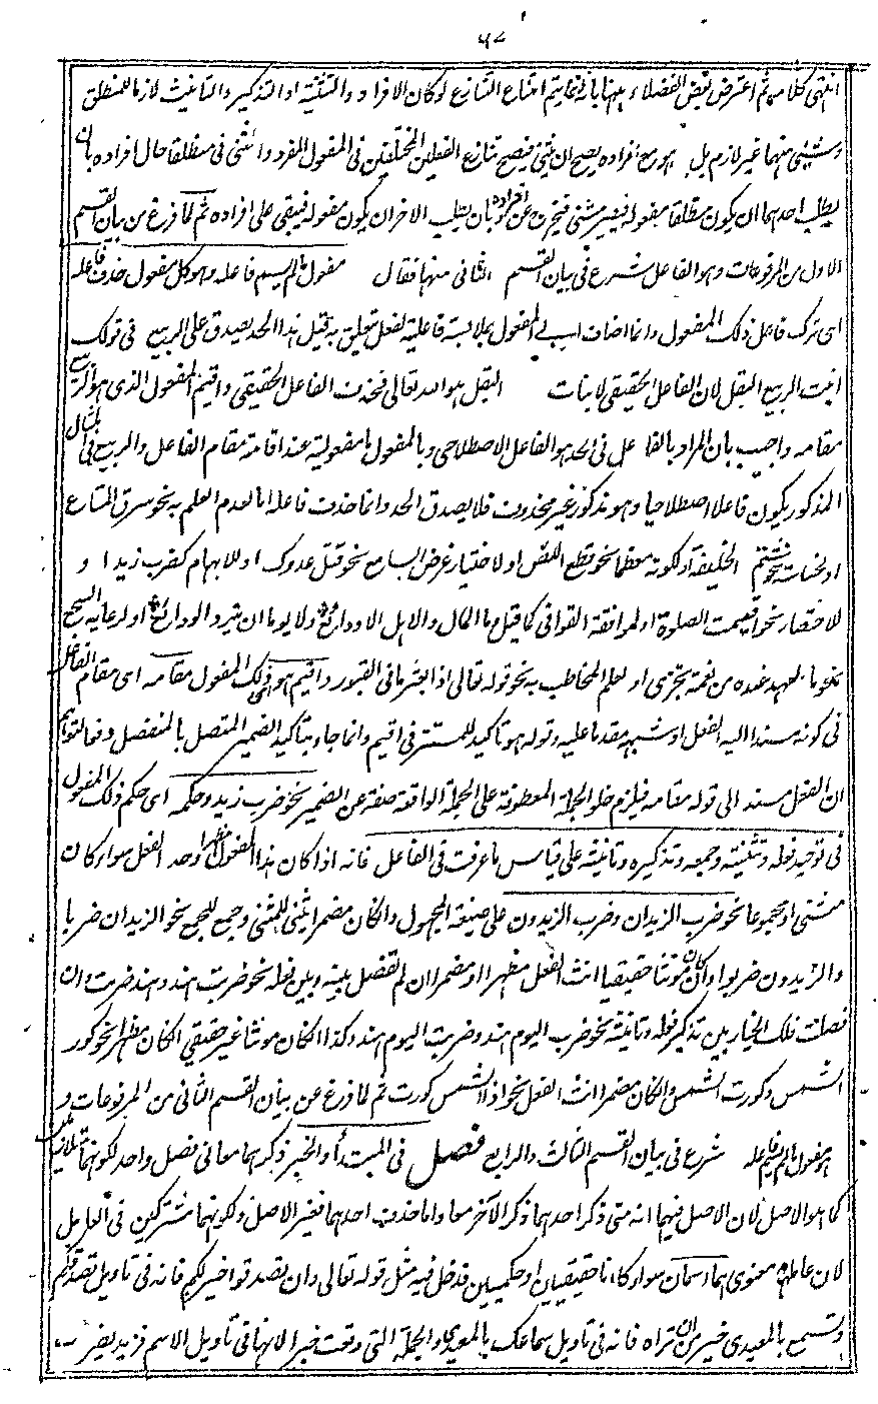 انتهى كلامه ثم اعترض بعض الفضلاء بهنا بانه انما يتم امتناع التنازع لو كان الافراد والتثنية او التذكير والتانيث لازما للمنطلق
وشئ منهما غير لازم بل هو مع افراده يصح ان يثنى فيصح تنازع الفعلين المختلفين فى المفعول المفرد والمثنى فى منطلقا حال افراده بان
يطلب احدهما ان يكون منطلقا مفعوله فيصير مثنى فيخرج عن افراده بان يطلب الآخر ان يكون مفعوله فيبقى على افراده ثم لما فرغ من بيان القسم
الاول من المرفوعات وهو الفاعل شرع فى بيان القسم الثانى منها فقال مفعول مالم يسم فاعله وهو كل مفعول حذف فاعله
اى ترك فاعل ذلك المفعول وانما اضاف الى المفعول بملابسة فاعلية لفعل تعلق به قيل هذا الحد يصدق على الربيع فى قولك
انبت الربيع البقل لان الفاعل الحقيقى لانبات البقل هو الله تعالى فحذف الفاعل الحقيقى واقيم المفعول الذى هو الربيع
مقامه واجيب بان المراد بالفاعل فى الحد هو الفاعل الاصطلاحى وبالمفعول بامفعولية عند اقامته مقام الفاعل والربيع فى المثال
المذكور يكون فاعلا اصطلاحيا وهو مذكور غير محذوف فلا يصدق الحد وانما حذف فاعله اما لعدم العلم به نحو سرق المتاع
او لخساسته نحو شتم الخليفة او لكونه معظما نحو قطع اللص او لاختيار غرض السامع نحو قتل عدوك او للابهام كضرب زيد او
للاختصار نحو اقيمت الصلوة او لموافقة القوافى كما قيل ما المال والاهل الا ودائع ولا يوما ان ترد الودائع او لرعاية السجع
نحو ما لعهد عنده من نعمة تجزى او لعلم المخاطب به نحو قوله تعالى اذا بعثر مافى القبور واقيم هو اى ذلك المفعول مقامه اى مقام الفاعل
فى كونه مسندا اليه الفعل او شبهه مقدما عليه وقوله هو تاكيد للمستتر فى اقيم وانما جاء بتاكيد الضمير المتصل بالمنفصل دفعا لتوهم
ان الفعل مسند الى قوله مقامه فيلزم خلو الجملة المعطوفة على الجملة الواقعة صفة عن الضمير نحو ضرب زيد وحكمه اى حكم ذلك المفعول
فى توحيد فعله وتثنيته وجمعه وتذكيره وتانيثه على قياس ما عرفت فى الفاعل فانه اذا كان هذا المفعول مظهرا وحد الفعل سواء كان
مثنى او مجموعا نحو ضرب الزيدان وضرب الزيدون على صيغة المجهول وان كان مضمرا يثنى للمثنى وجمع للجمع نحو الزيدان ضربا
والزيدون ضربوا وان كان مونثا حقيقيا انث الفعل مظهرا او مضمرا ان لم تفصل بينه وبين فعله نحو ضربت هند وهند ضربت وان
فصلت فلك الخيار بين تذكير فعله وتانيثه نحو ضرب اليوم هند وضربت اليوم هند وكذا ان كان مونثا غير حقيقى ان كان مظهرا نحو كور
الشمس وكورت الشمس وان كان مضمرا انث الفعل نحو اذا الشمس كورت ثم لما فرغ عن بيان القسم الثانى من المرفوعات و
هو مفعول مالم يسم فاعله شرع فى بيان القسم الثالث والرابع فصل فى المبتدأ والخبر ذكرهما معا فى فصل واحد لكونهما متلازمين
كما هو الاصل لان الاصل فيهما انه متى ذكر احدهما ذكر الآخر معا واما حذف احدهما فغير الاصل ولكونهما مشتركين فى العامل
لان عاملهما معنوى هما اسمان سواء كانا حقيقيان او حكميين فدخل فيه مثل قوله تعالى وان تصدقوا خير لكم فانه فى تاويل تصدقكم
وتسمع بالمعيدى خير من ان تراه فانه فى تاويل سماعك بالمعيدى والجملة التى وقعت خبرا لانها فى تاويل الاسم فزيد يضرب